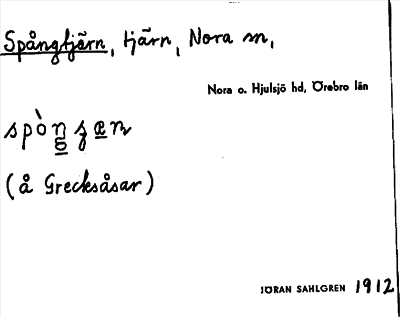 Spångtjärn, tjärn, Nora sn,
Nora o. Hjulsjö hd, Örebro län
(å Grecksåsar)
JÖRAN SAHLGREN 1912